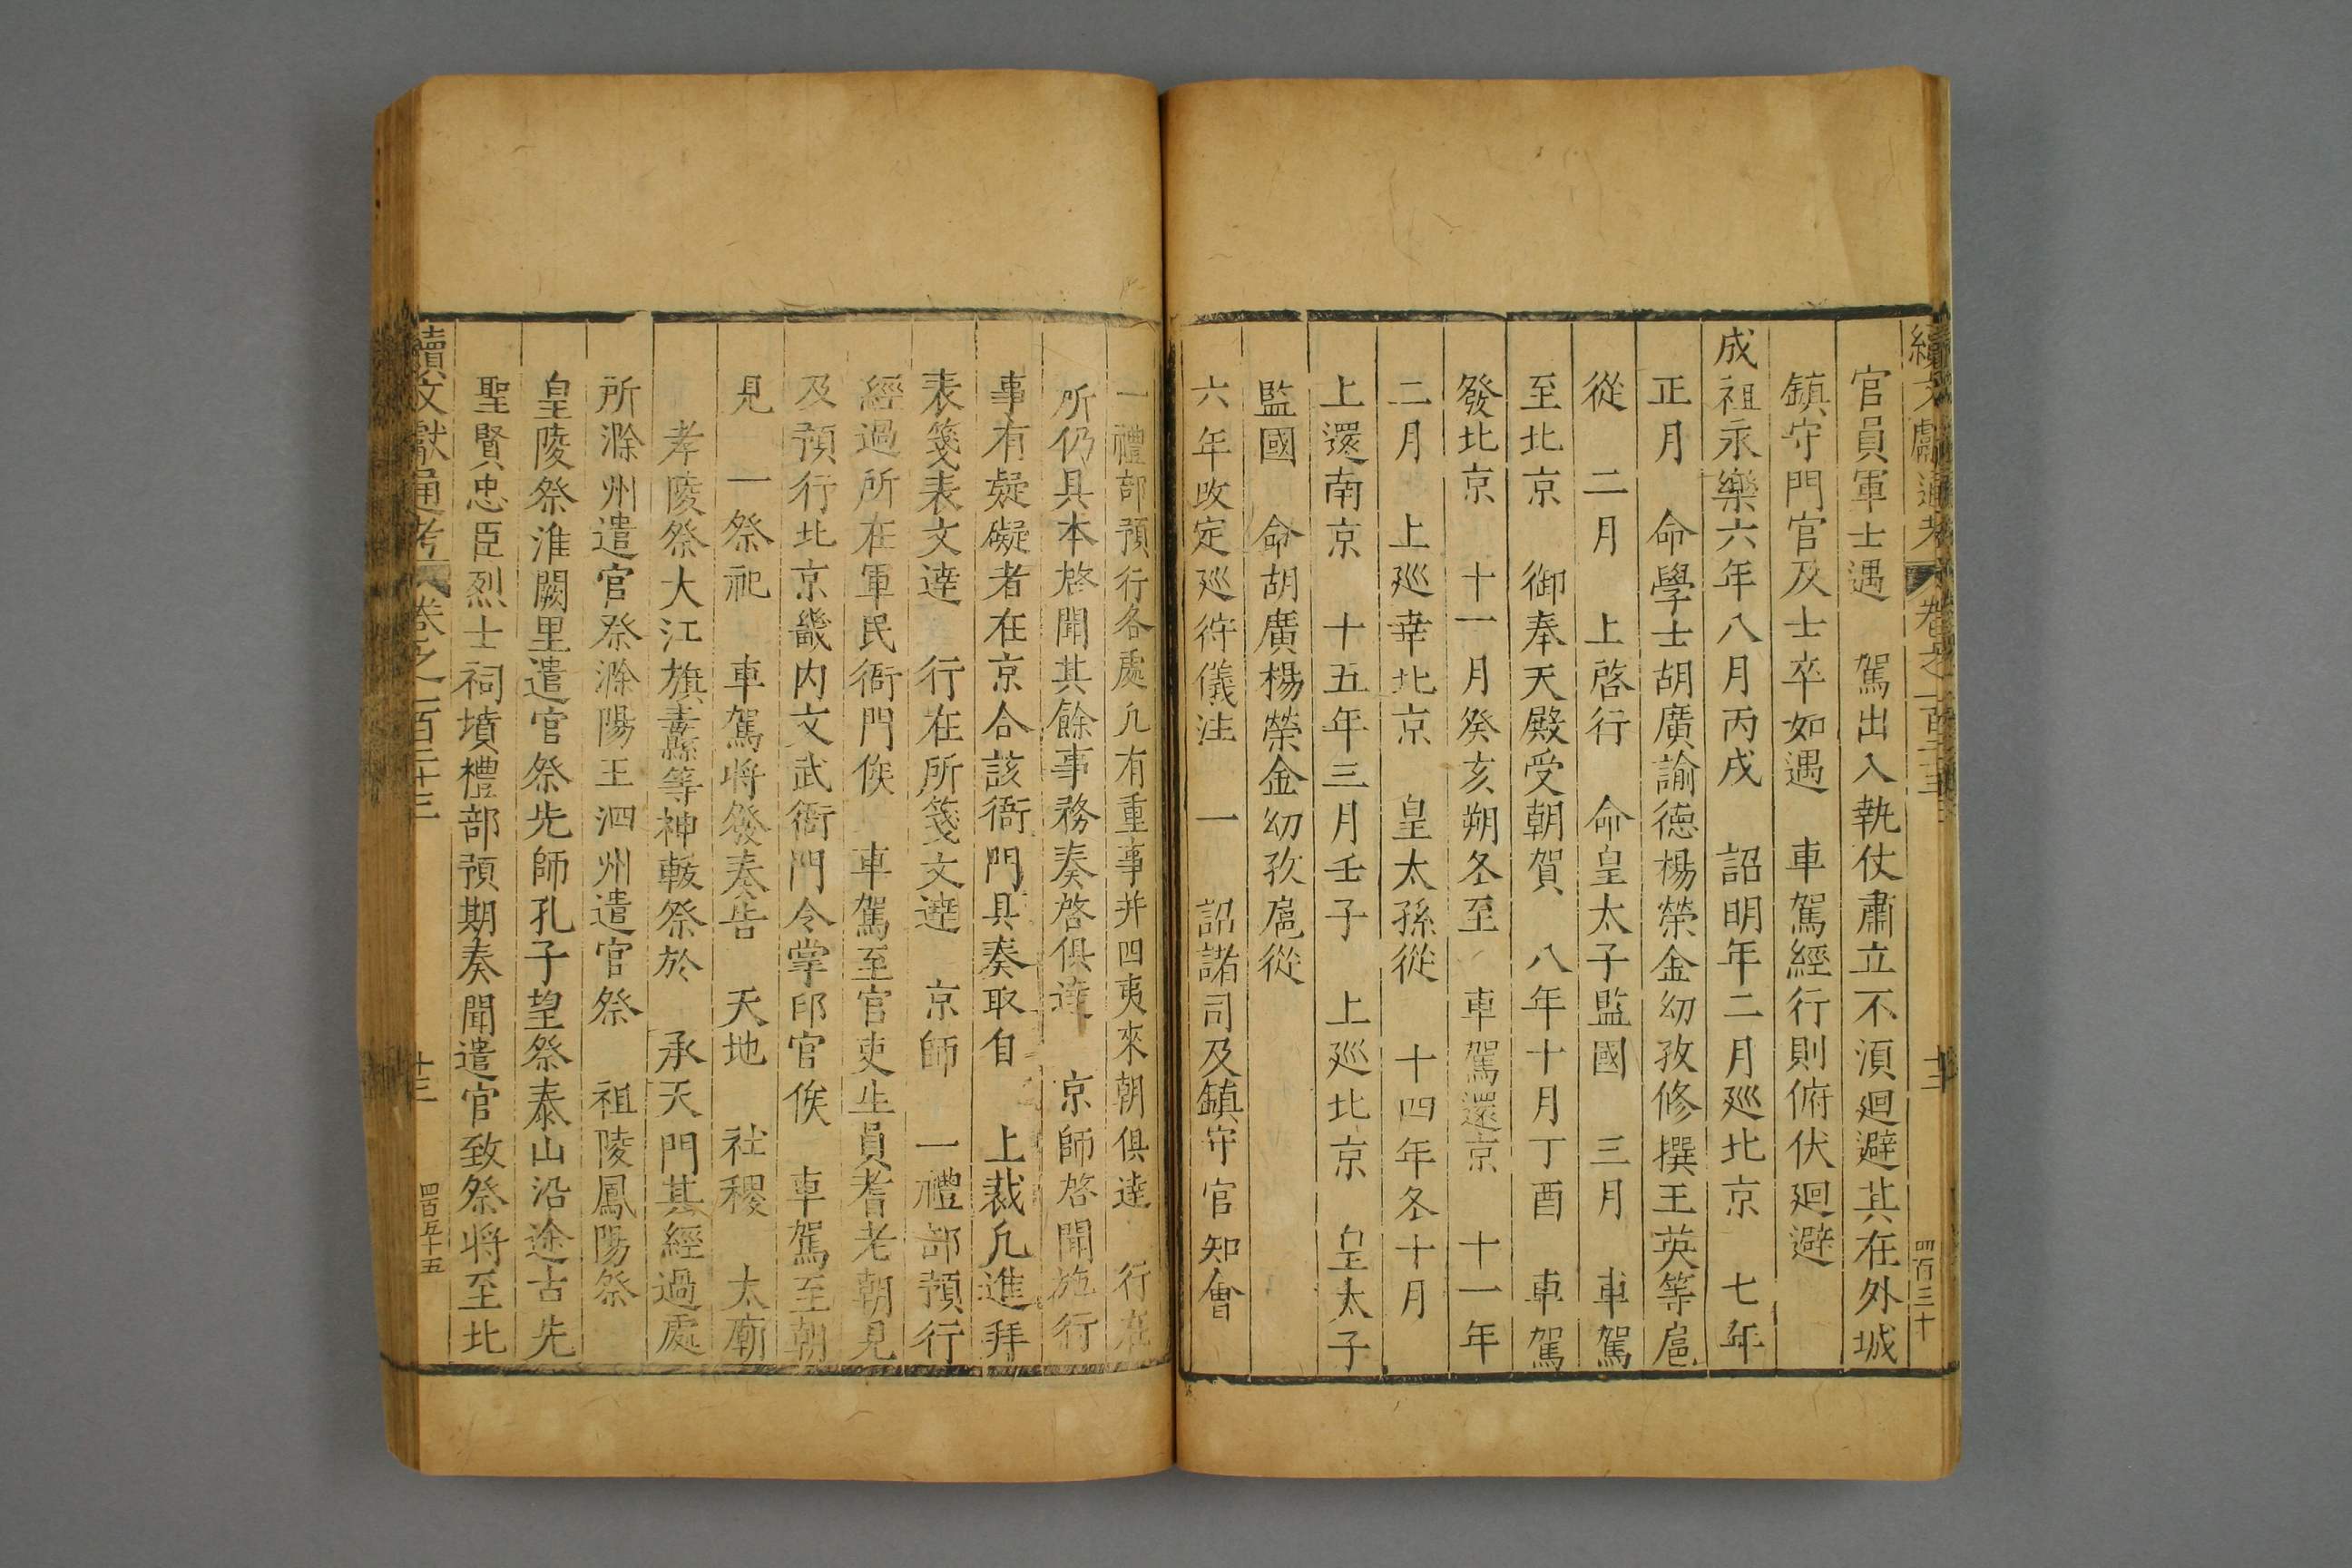 續文獻通考 卷之一百二十三 十二 四百三十
官員軍士遇 駕出入執仗肅立不須迴避其在外城
鎮守門官及士卒如遇 車駕經行則俯伏迴避
成祖永樂六年八月丙戌 詔明年二月廵北京 七年
正月 命學士胡廣諭德楊榮金幼孜修撰王英等扈
從 二月 上啓行 命皇太子監國 三月 車駕
至北京 御奉天殿受朝賀 八年十月丁酉 車駕
發北京 十一月癸亥朔冬至 車駕還京 十一年
二月 上廵幸北京 皇太孫從 十四年冬十月
上還南京 十五年三月壬子 上廵北京 皇太子
監國 命胡廣楊榮金幼孜扈從
六年改定廵狩儀注 一 詔諸司及鎮守官知會
一禮部預行各處凢有重事并四夷來朝俱達 行在
所仍具本啓聞其餘事務奏啓俱達 京師啓聞施行
事有疑礙者在京合該衙門具奏取自 上裁凢進拜
表箋表文達 行在所箋文達 京師 一禮部預行
經過所在軍民衙門俟 車駕至官吏生員耆老朝見
及預行北京畿内文武衙門令掌印官俟 車駕至朝
見 一祭祀 車駕將發奏告 天地 社稷 太廟
孝陵祭大江旗纛等神軷祭於 承天門其經過處
所滁州遣官祭滁陽王泗州遣官祭 祖陵鳳陽祭
皇陵祭淮闕里遣官祭先師孔子望祭泰山沿途古先
聖賢忠臣烈士祠墳禮部預期奏聞遣官致祭將至北
續文獻通考 卷之一百二十三 十三 四百五十五